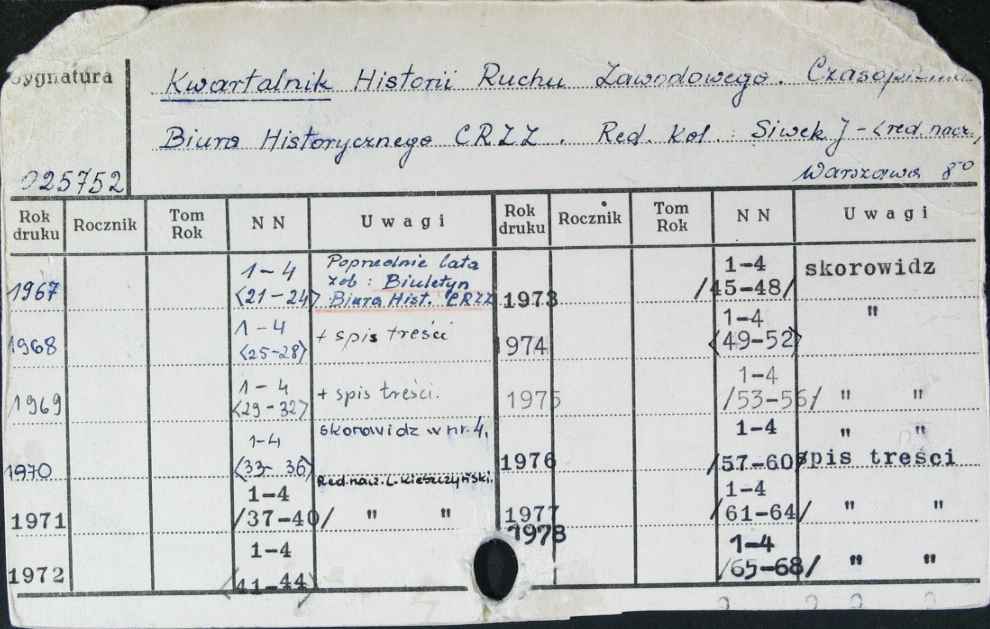 Sygnatura
Kwartalnik Historii Ruchu Zawodowego. Czasopismo
Biura Historycznego CRZZ. Red. Kol.: Siwek J - <red. nacz.,
025752
Warszawa 8°
Rok druku Rocznik Tom Rok NN Uwagi Rok druku Rocznik Tom Rok NN Uwagi
1967 1-4 <21-24> Poprzednie lata zob: Biuletyn Biura Hist. CRZZ 1973 1-4 /45-48/ skorowidz
1968 1-4 <25-28> + spis treści 1974 1-4 <49-52> "
1969 1-4 <29-32> + spis treści. 1975 1-4 /53-56/ " "
1970 1-4 <33-36> skorowidz w nr. 4. 1976 1-4 /57-60/ " " spis treści
Red. nacz. L. Kieszczyński.
1971 1-4 /37-40/ " " 1977 1-4 /61-64/ " "
1972 1-4 <41-44> 1978 1-4 /65-68/ " "